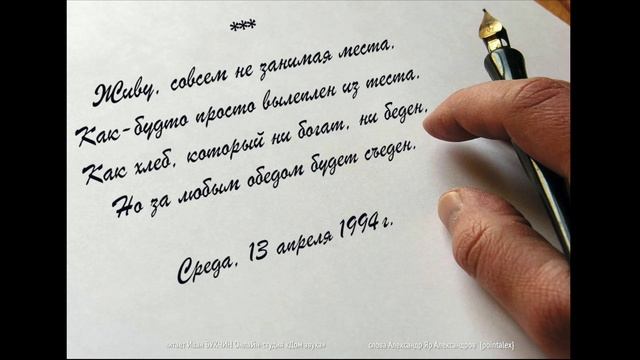 ***
Живу, совсем не занимая места,
Как-будто просто вылеплен из теста.
Как хлеб, который ни богат, ни беден,
Но за любым обедом будет съеден.
Среда, 13 апреля 1994 г.
читает Иван БУКЧИН Онлайн-студия «Дом звука» слова Александр Яр Александров (pointalex)